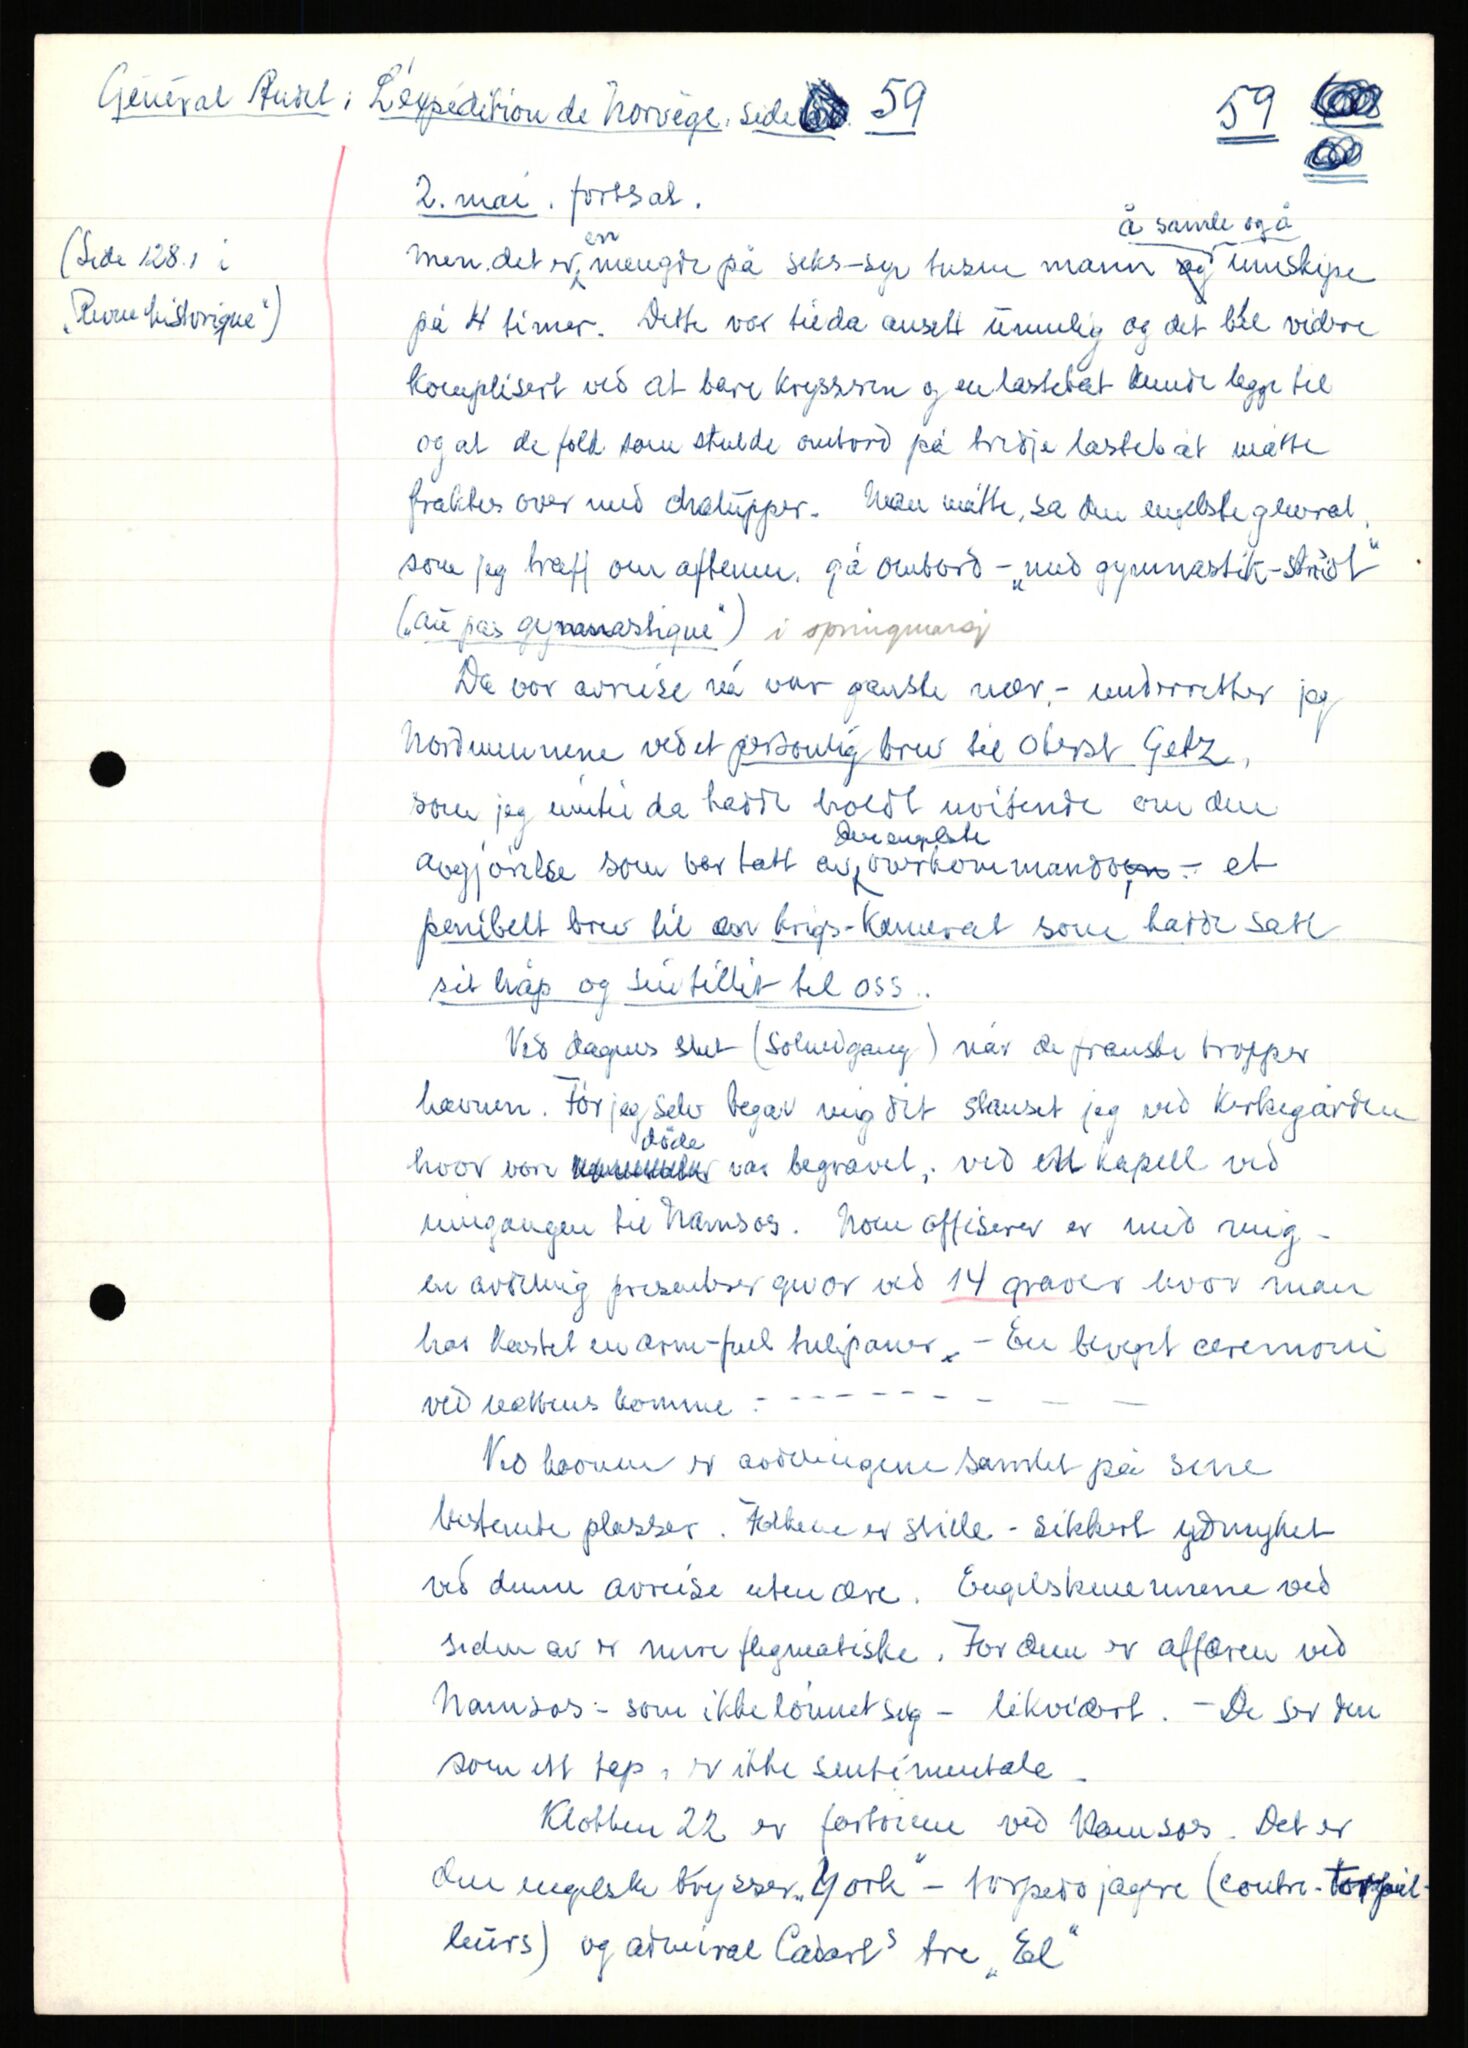 Général Audet: L'éxpédition de Norvège. side 59
59
2. mai. fortsat.
(Side 128, i
"Revue historique")
å samle og å
men det er en mengde på seks-syv tusen mann innskipe
på 4 timer. Dette var til da ansett umulig og det ble videre
komplisert ved at bare krysseren og en lastebåt kunde legge til
og at de folk som skulde ombord på tredje lastebåt måtte
fraktes over med chalupper. Man måtte, sa den engelske general,
som jeg traff om aftenen, gå ombord - "med gymnastik-skridt"
("au pas gymnastique") i springmarsj
Da vor avreise nå var ganske nær, - underretter jeg
Nordmennene ved et personlig brev til Oberst Getz,
som jeg inntil da hadde holdt uvitende om den
den engelske
avgjörelse som var tatt av overkommando - et
penibelt brev til en krigs-kamerat som hadde satt
sit håp og sin tillit til oss..
Ved dagens slut (solnedgang) når de franske tropper
havnen. För jeg selv begav mig dit stanset jeg ved kirkegården
döde
hvor vore var begravet, ved ett kapell ved
inngangen til Namsos. Noen offiserer er med mig -
en avdeling presenterer gevær ved 14 graver hvor man
har kastet en arm-full tulipaner. - En beveget ceremoni
ved nattens komme. - - - - - - - - - -
Ved havnen er avdelingene samlet på sine
bestemte plasser. Folkene er stille - sikkert ydmyket
ved denne avreise uten ære. Engelskmennene ved
siden av er mere flegmatiske. For dem er affæren ved
Namsos - som ikke lönnet sig - likvidert. - De ser den
som ett tap, er ikke sentimentale -
Klokken 22 er fartöiene ved Namsos. Det er
den engelske krysser "York" - torpedojagere (contre-torpil-
leurs) og admiral Cadart's tre "El"